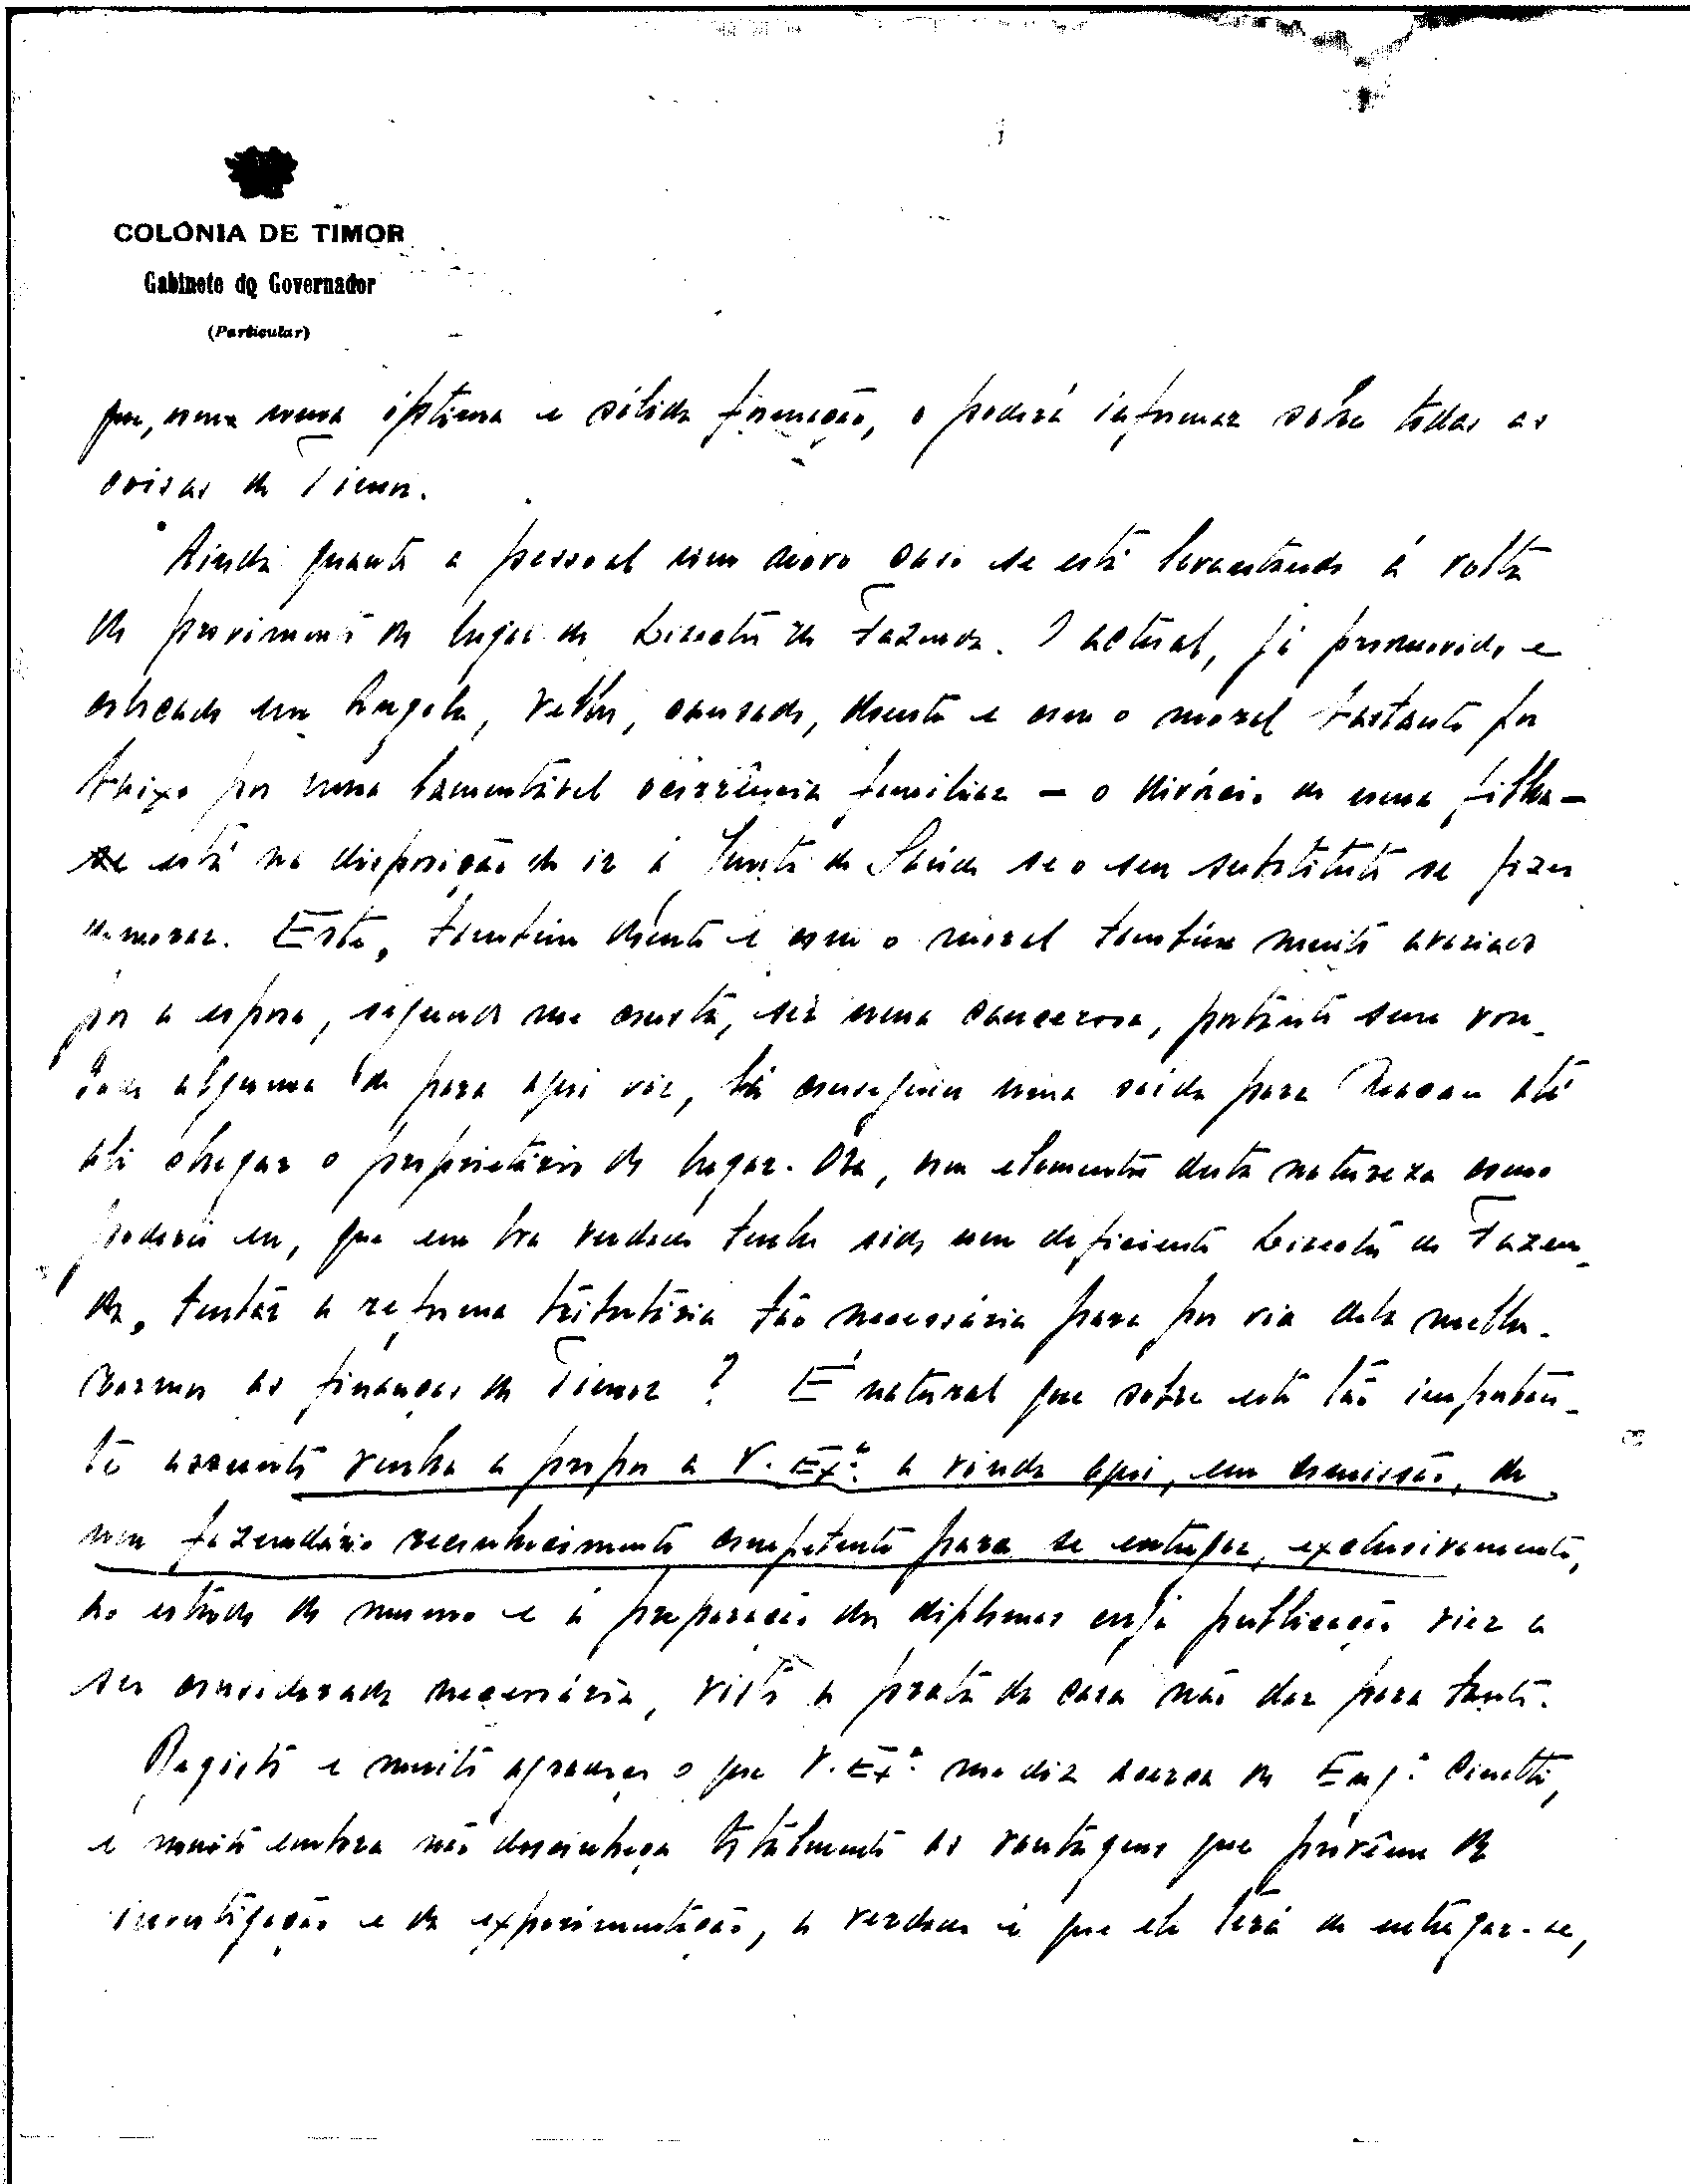 COLÓNIA DE TIMOR
Gabinete do Governador
(Particular)
que, com uma óptima e sólida formação, o poderá informar sôbre todas as
coisas de Timor.
Ainda quanto a pessoal um novo caso se está levantando á volta
do provimento do lugar de Director de Fazenda. O actual, já promovido e
colocado em Angola, velho, cansado, doente e com o moral bastante por
baixo por uma lamentável ocorrência familiar - o divórcio de uma filha -
está na disposição de ir á Junta de Saúde se o seu substituto se fizer
demorar. Este, também doente e com o moral também muito avariado
por a esposa, segundo me consta, ser uma cancerosa, portanto sem von-
tade alguma de para aqui vir, lá conseguiu uma saída para Macau até
ali chegar o proprietário do lugar. Ora, com elementos desta natureza como
poderei eu, que em boa verdade tenho sido um deficiente Director de Fazen-
da, tentar a reforma tributária tão necessária para por via dela melho-
rarmos as finanças de Timor? É natural que sobre este tão importan-
te assunto venha a propor a V. Exª. a vinda aqui, em comissão, de
um fazendário reconhecidamente competente para se entregar, exclusivamente,
ao estudo do mesmo e á preparação dos diplomas cuja publicação vier a
ser considerada necessária, visto a prata da casa não dar para tanto.
Registo e muito agradeço o que V. Exª. me diz acerca do Engº. Cinatti,
e muito embora não desconheça totalmente as vantagens que provêem da
investigação e da experimentação, a verdade é que ele terá de entregar-se,